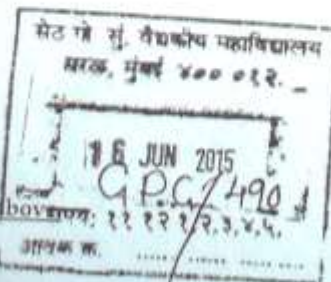 सेठ गो सुं. वैद्यकीय महाविद्यालय
परळ, मुंबई ४०० ०१२.
16 JUN 2015
GPC/490
bov
११ १२ १/२,३,४,५.
आवक क्र.